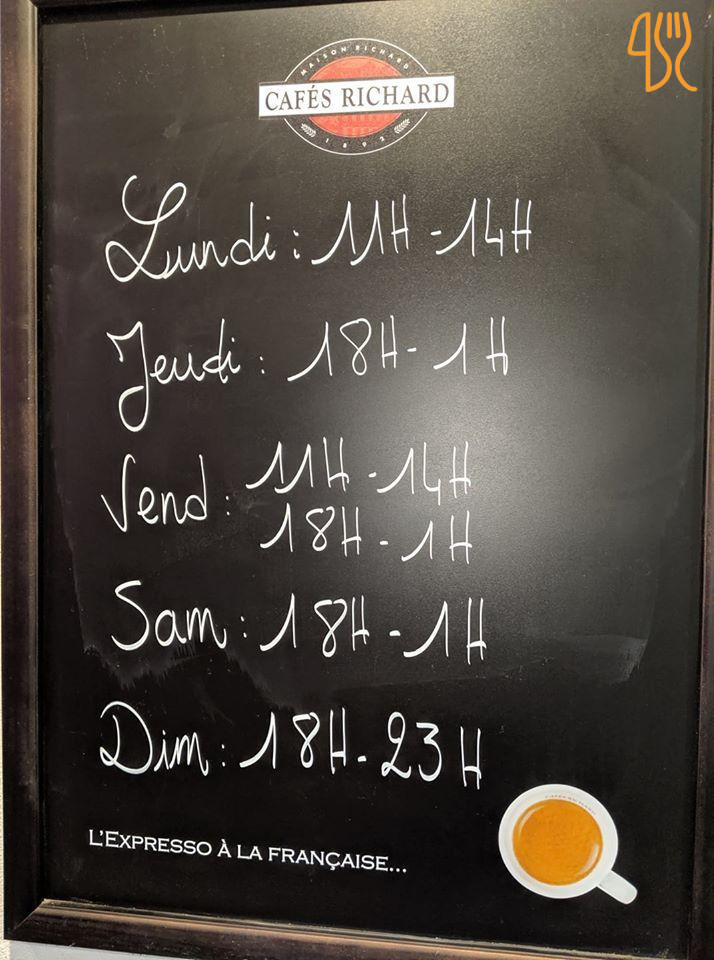 MAISON RICHARD
CAFÉS RICHARD
1892
Lundi : 11H - 14H
Jeudi : 18H - 1H
Vend : 11H - 14H
18H - 1H
Sam : 18H - 1H
Dim : 18H - 23H
L'EXPRESSO À LA FRANÇAISE...
CAFÉS RICHARD